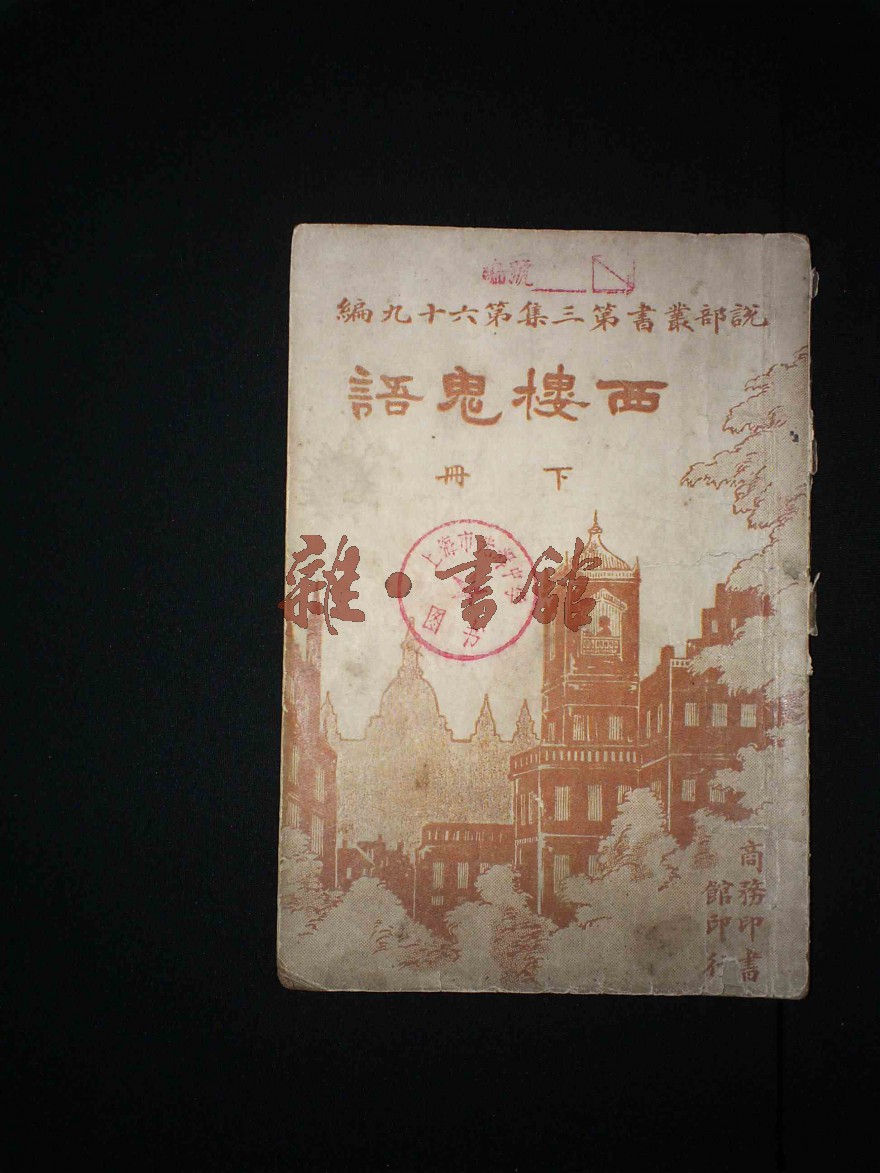 編號
說部叢書第三集第六十九編
西樓鬼語
下冊
雜·書館
上海市
图书
商務印書
館印行